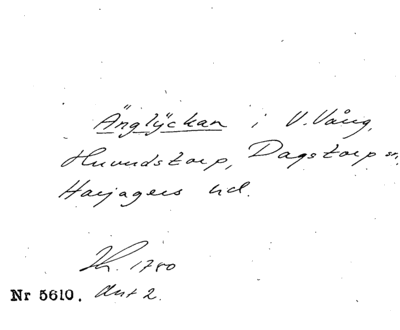 Änglÿckan i V. Vång,
Huvudstorp, Dagstorp sn,
Harjagers hd.
Kt. 1780
Nr 5610. Akt 2.